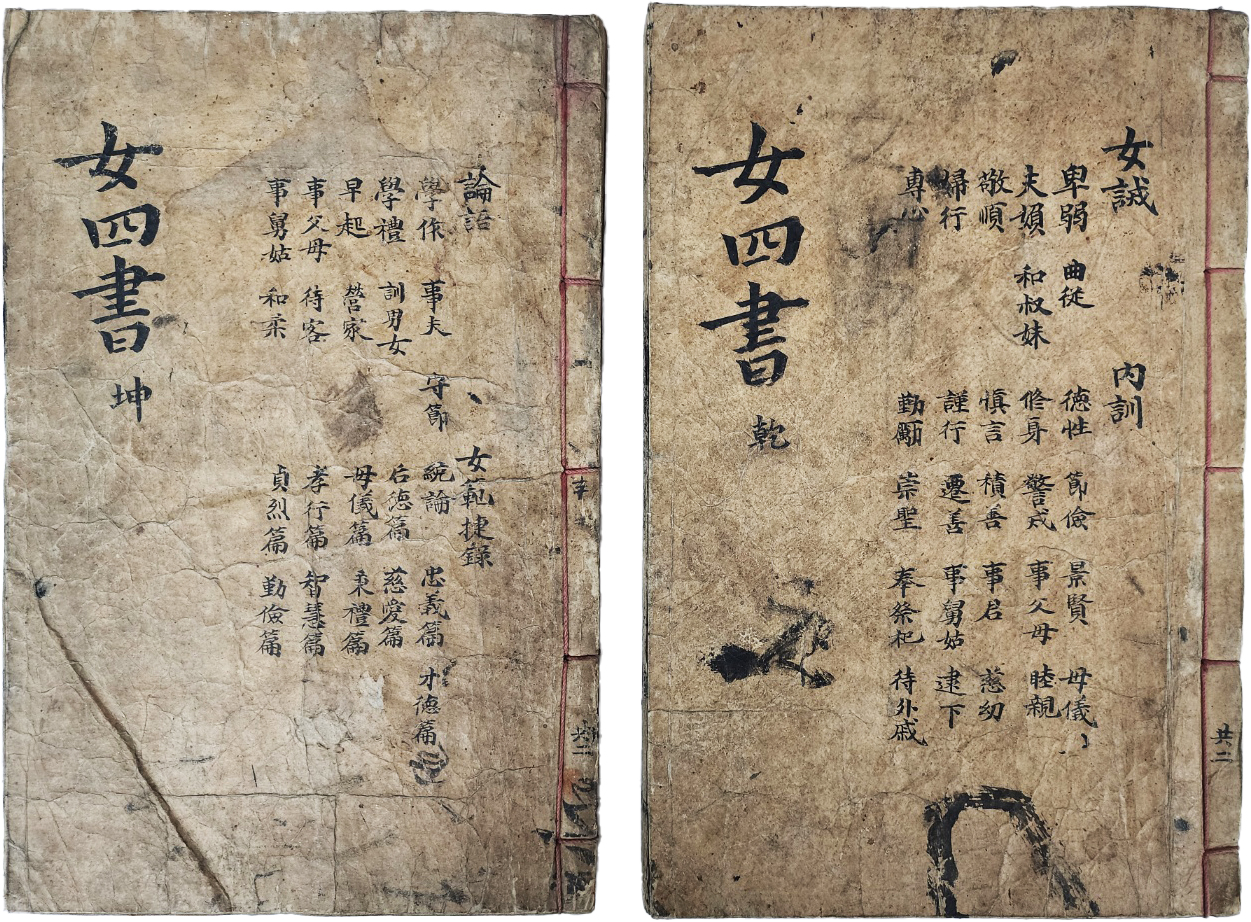 共二
女誡 內訓
卑弱 曲從 德性 節儉 景賢 母儀
夫媍 和叔妹 修身 警戒 事父母 睦親
敬順 慎言 積善 事君 慈幼
婦行 謹行 遷善 事舅姑 逮下
專心 勤勵 崇聖 奉祭祀 待外戚
女四書 乾
共二
論語 女範捷錄
學作 事夫 守節 統論 忠義篇 才德篇
學禮 訓男女 后德篇 慈愛篇
早起 營家 母儀篇 秉禮篇
事父母 待客 孝行篇 智慧篇
事舅姑 和柔 貞烈篇 勤儉篇
女四書 坤